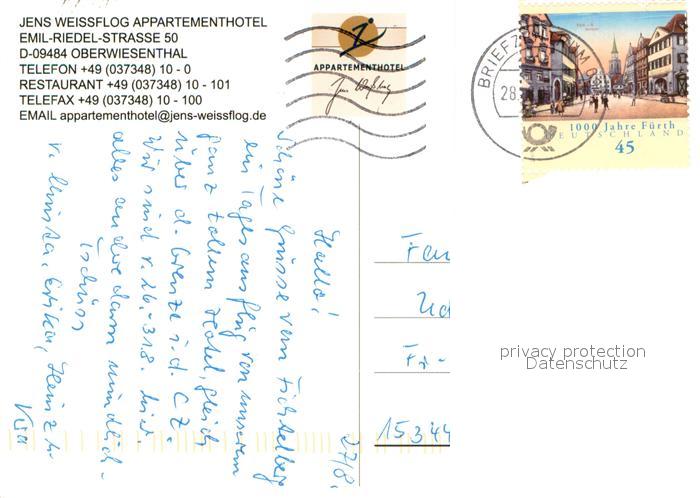 JENS WEISSFLOG APPARTEMENTHOTEL
EMIL-RIEDEL-STRASSE 50
D-09484 OBERWIESENTHAL
TELEFON +49 (037348) 10 - 0
RESTAURANT +49 (037348) 10 - 101
TELEFAX +49 (037348) 10 - 100
EMAIL appartementhotel@jens-weissflog.de
APPARTEMENTHOTEL
Jens Weißflog
BRIEFZENTRUM
28.
1000 Jahre Fürth
DEUTSCHLAND
45
27/8.
Hallo!
Schöne Grüsse vom Fichtelberg
ein Tagesausflug von unserem
ganz tollem Hotel, gleich
über d. Grenze i. d. CZ
Wir sind v. 26.-31.8. hier.
alles andere dann mündlich.
Tschüss
v. Christa, Erika, Heinz u.
15344
privacy protection
Datenschutz